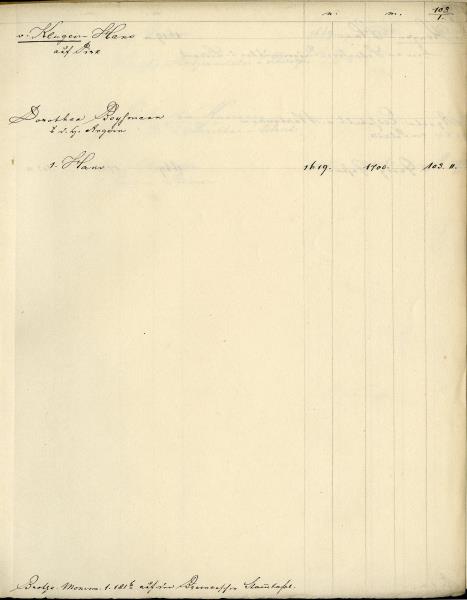 n. m. 103
1.
v. Klugen Hans
auf Pirk
Dorothea Boyſmann
1. Hans 1619. 1700 103. II.
Brotze Monum. 1. 181b auf der Stammtafel.